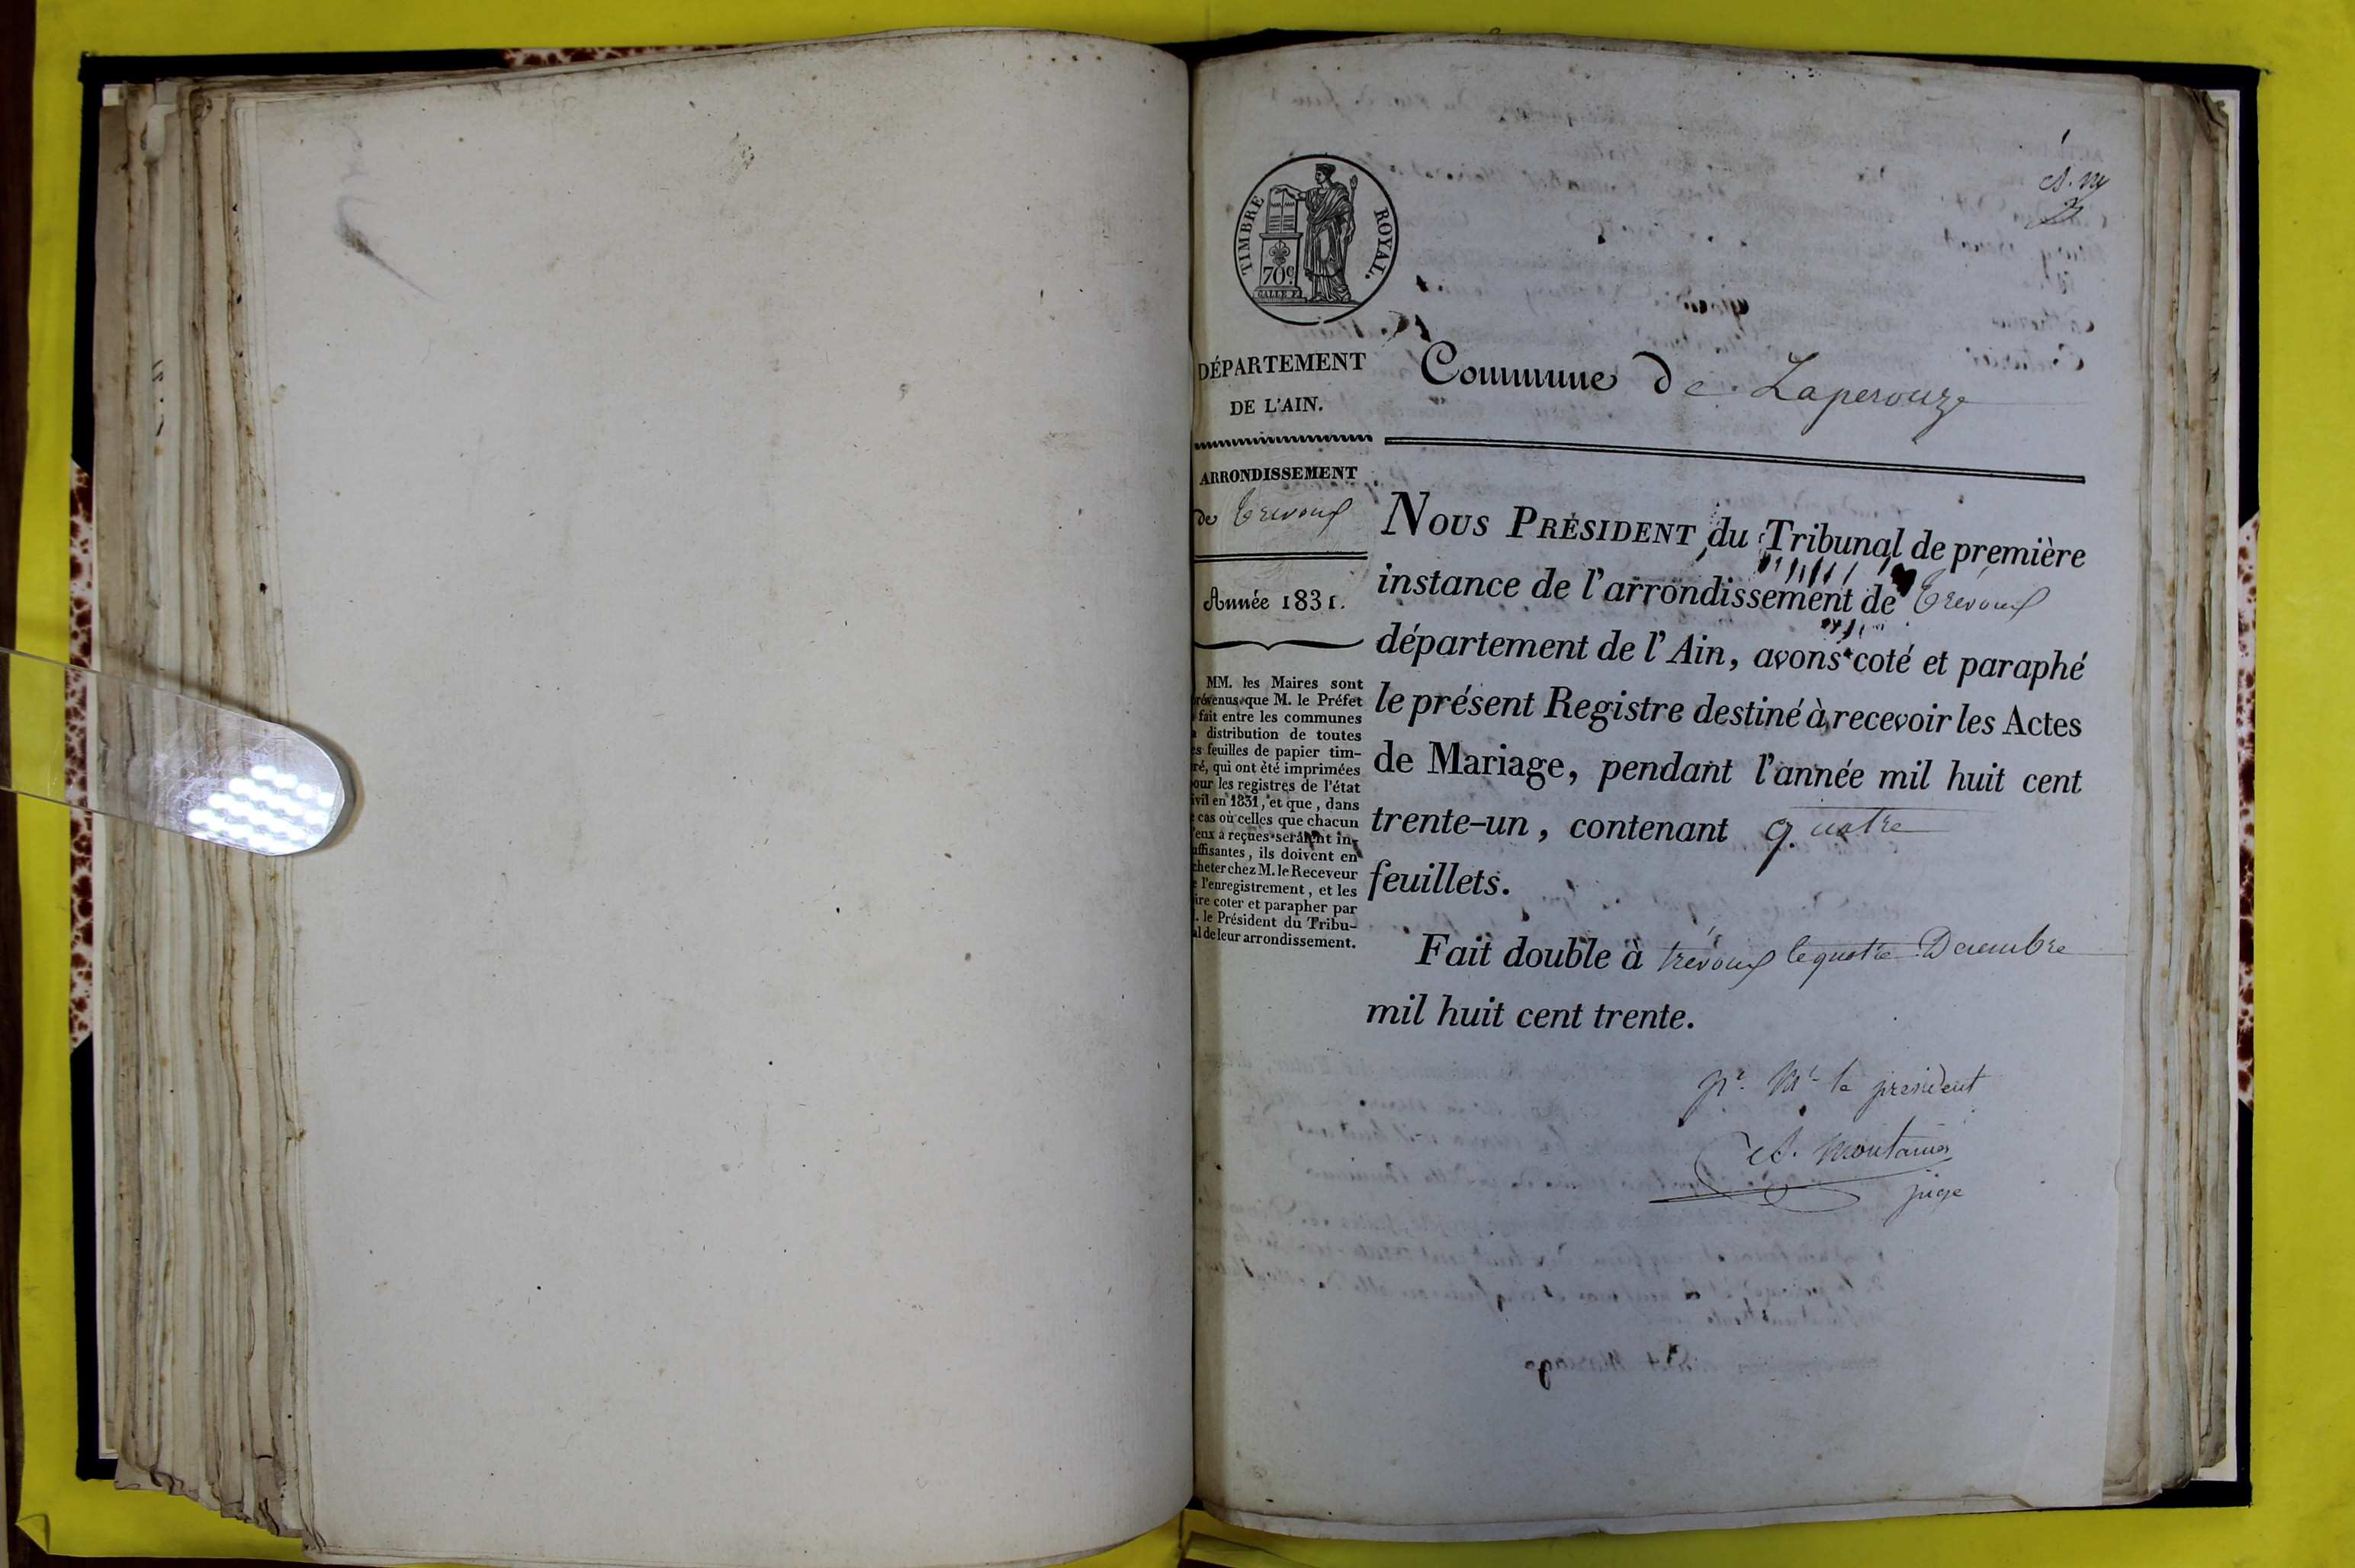 1
TIMBRE ROYAL.
70c
GALLE F.
DÉPARTEMENT
DE L'AIN.
Commune de Laperouze
ARRONDISSEMENT
de Trevoux
Année 1831.
MM. les Maires sont
prévenus que M. le Préfet
a fait entre les communes
la distribution de toutes
les feuilles de papier tim-
bré, qui ont été imprimées
pour les registres de l'état
civil en 1831, et que, dans
le cas où celles que chacun
d'eux a reçues seraient in-
suffisantes, ils doivent en
acheter chez M. le Receveur
de l'enregistrement, et les
faire coter et parapher par
M. le Président du Tribu-
nal de leur arrondissement.
NOUS PRÉSIDENT du Tribunal de première
instance de l'arrondissement de Trévoux
département de l'Ain, avons coté et paraphé
le présent Registre destiné à recevoir les Actes
de Mariage, pendant l'année mil huit cent
trente-un, contenant quatre
feuillets.
Fait double à trévoux le quatre Decembre
mil huit cent trente.
pr. Mr. le president
juge